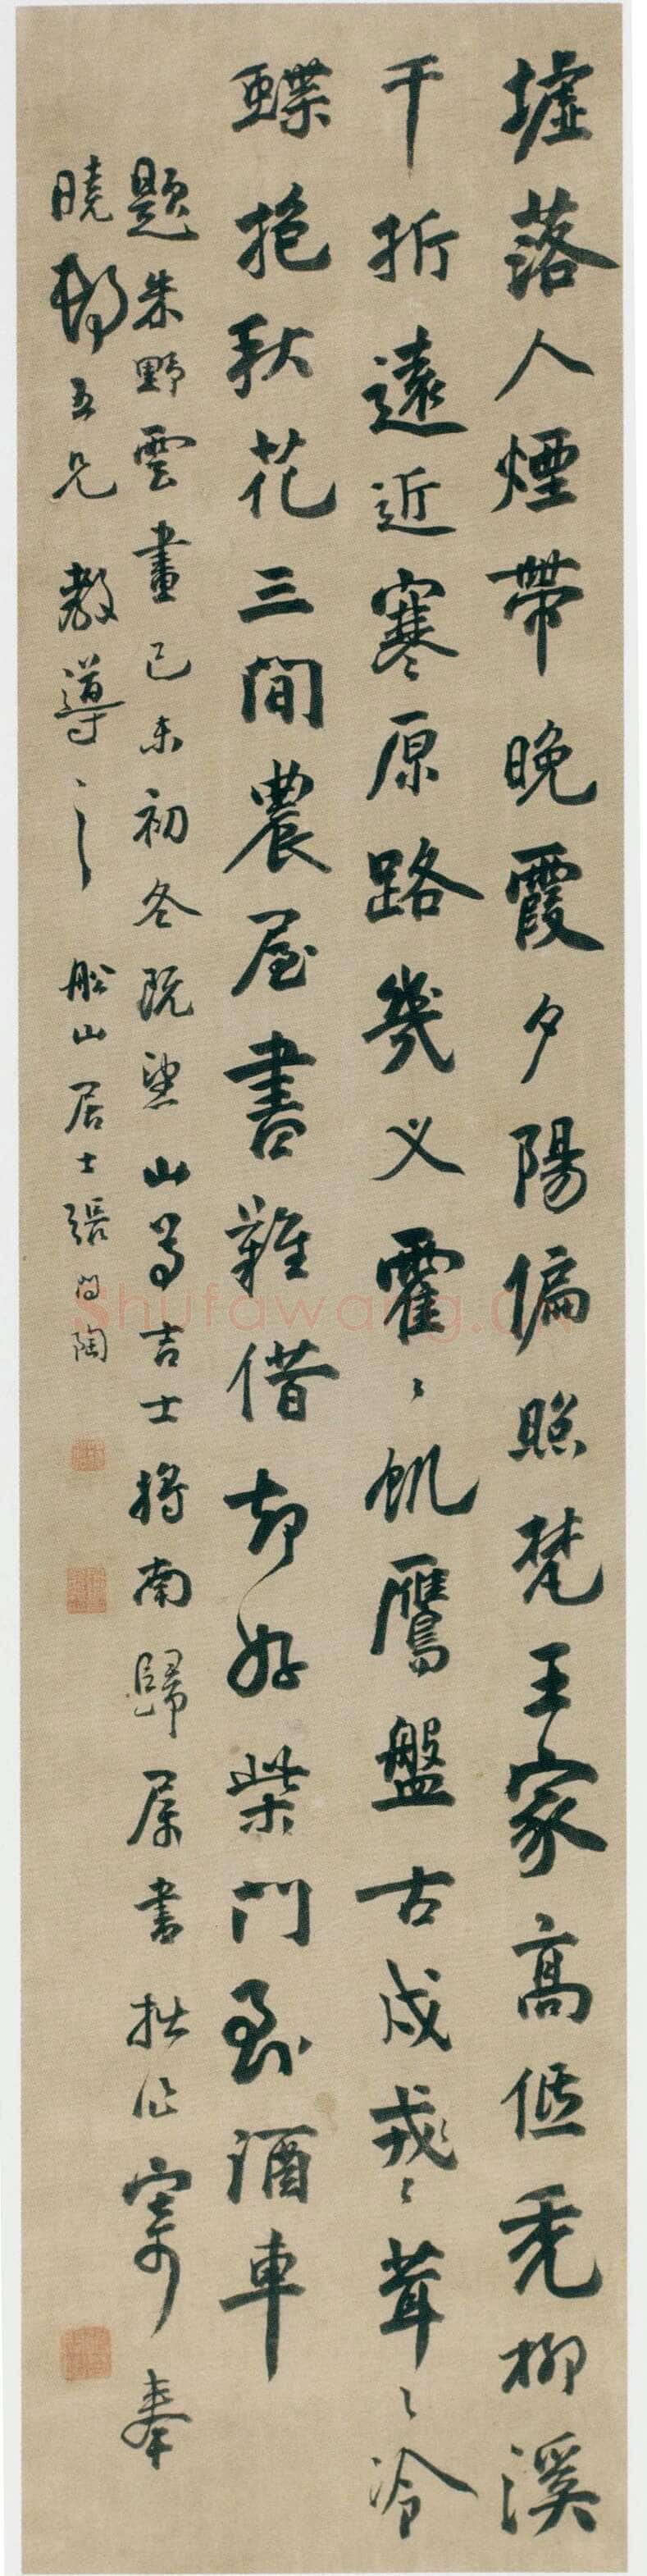 墟落人煙帶晚霞夕陽偏照梵王家高低禿柳溪
千折遠近寒原路幾叉霍〻飢鷹盤古戍戎〻茸〻冷
蝶抱秋花三間農屋書難借却好柴門到酒車
題朱野雲畫己未初冬既望山尊吉士將南歸屬書拙作寄奉
曉五兄教導之 船山居士張問陶
Shufawang.cn